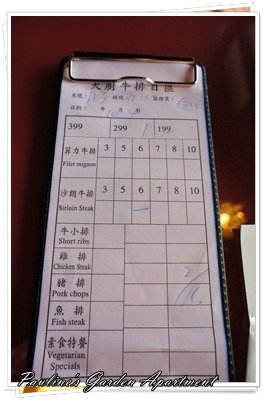 大廚牛排日匯
桌號: 時間
日期: 年 月 日
399 299 1 199
菲力牛排 3 5 6 7 8 10
Filet mignon
沙朗牛排 3 5 6 7 8 10
Sirloin Steak
牛小排
Short ribs
雞 排
Chicken Steak
2/6
豬 排
Pork chops
魚 排
Fish steak
素食特餐
Vegetarian
Specials
Pauline's Garden Apartment